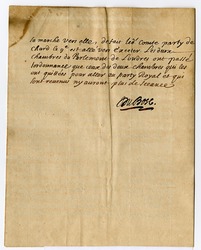 la marche vers elle, defait led. comte party de
Chard le 9e est allé vers Exceter Les deux
chambres du Parlement de Londres ont passé
lordonnance que ceux des deux chambres qui les
ont quittées pour aller au party Royal et qui
sont revenus ny auront plus de seance